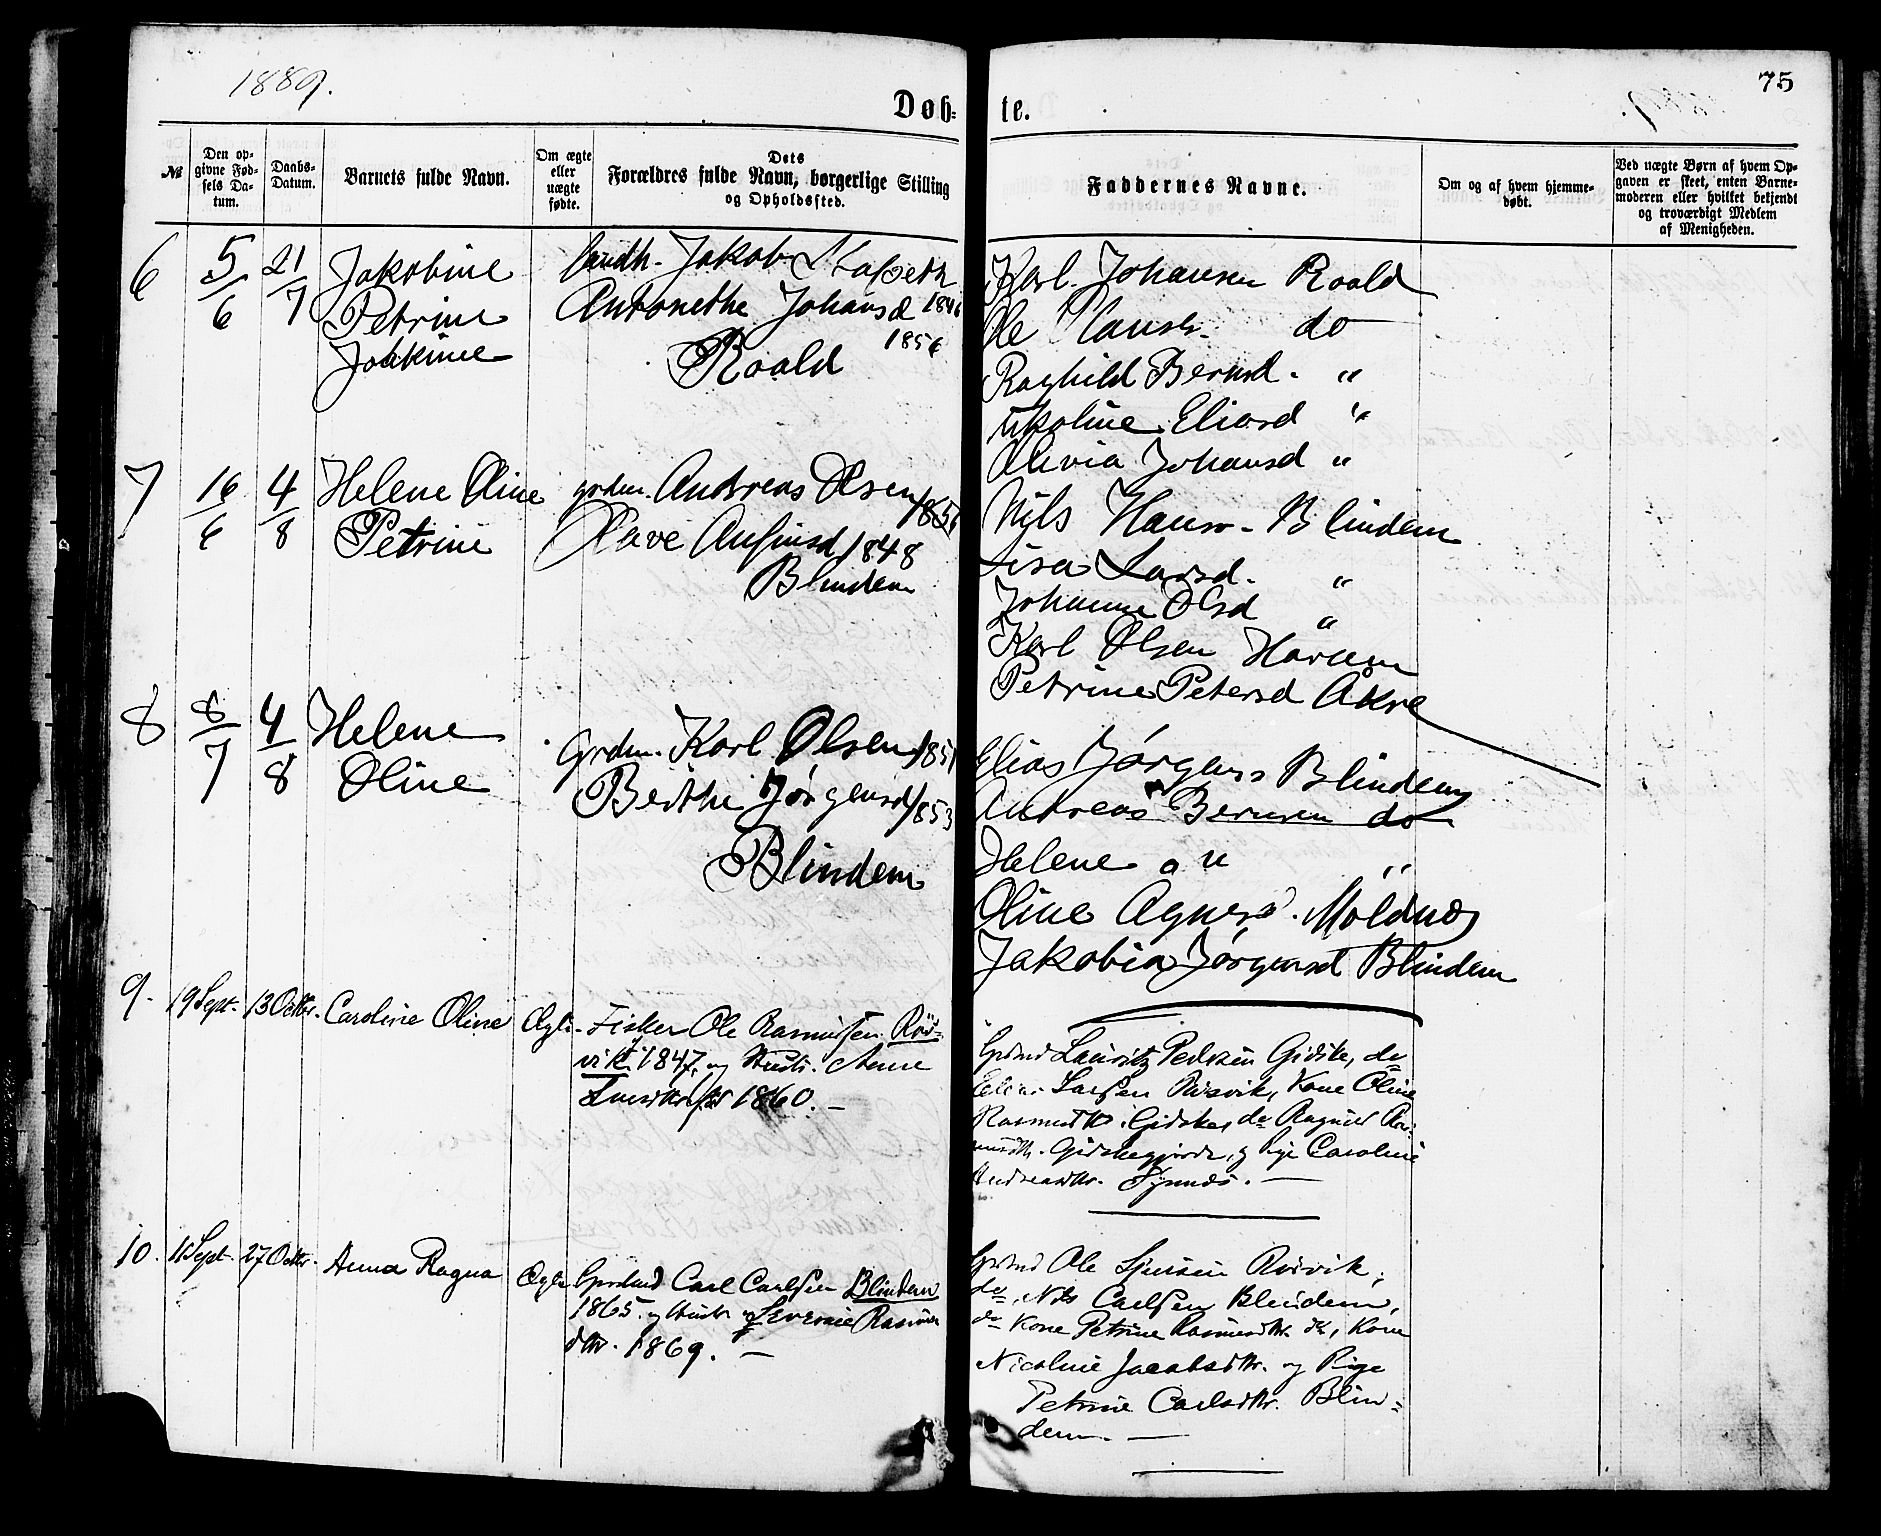 1889.
75
Døb=
te.
№
Den op-
givne Fød-
sels Da-
tum.
Daabs-
Datum.
Barnets fulde Navn.
Om ægte
eller
uægte
fødte.
Dets
Forældres fulde Navn, borgerlige Stilling
og Opholdssted.
Faddernes Navne.
Om og af hvem hjemme-
døbt.
Ved uægte Børn af hvem Op-
gaven er skeet, enten Barne-
moderen eller hvilket bekjendt
og troværdigt Medlem
af Menigheden.
6
5/6
21/7
Jakobine
Petrine
Joakime
Jakob
Antonethe Johansd 1846
1856
Roald
Karl Johansen Roald
Ole Hansen do
Raghild Bernsd. "
Nikoline Eliasd "
Olivia Johansd "
7
16/6
4/8
Helene Oline
Petrine
grdm. Andreas Olsen 1856
Olave Anfinsd 1848
Blindem
Nils Hansn - Blindem
Lisa Larsd. "
Johanne Olsd "
Karl Olsen Haram
Petrine Petersd Akre
8
8/7
4/8
Helene
Oline
Grdm. Karl Olsen 1851
Berthe Jørgensd 1853
Blindem
Elias Jørgens Blindem
Andreas Bernsen do
Helene "
Oline Agnes . Moldnes
Jakobia Jørgensd Blindem
9.
19 Sept.
13 Octbr.
Caroline Oline
Ægte
Fisker Ole Rasmussen Rös=
vik f. 1847, og Hustr. Anne
Knudtsdtr 1860. —
Grdmd Lauritz Pedersen Gidske, do
Larsen Rösvik, Kone Oline
Rasmusdtr. Gidske, do Ragnild Ras=
musdtr. Gidskegjerde, og Pige Caroline
Andreasdtr. Synnes. —
10.
11 Sept.
27 Octbr.
Anna Ragna
Ægte
Gaardmd Carl Carlsen Blindem
1865. og Hustr Severine Rasmus
dtr. 1869. —
Grdmd Ole Sjursen Rösvik,
do, Nils Carlsen Blindem,
do Kone Petrine Rasmusdtr. do, Kone
Nicoline Jacobsdtr. og Pige
Petrine Carlsdtr. Blin=
dem. —